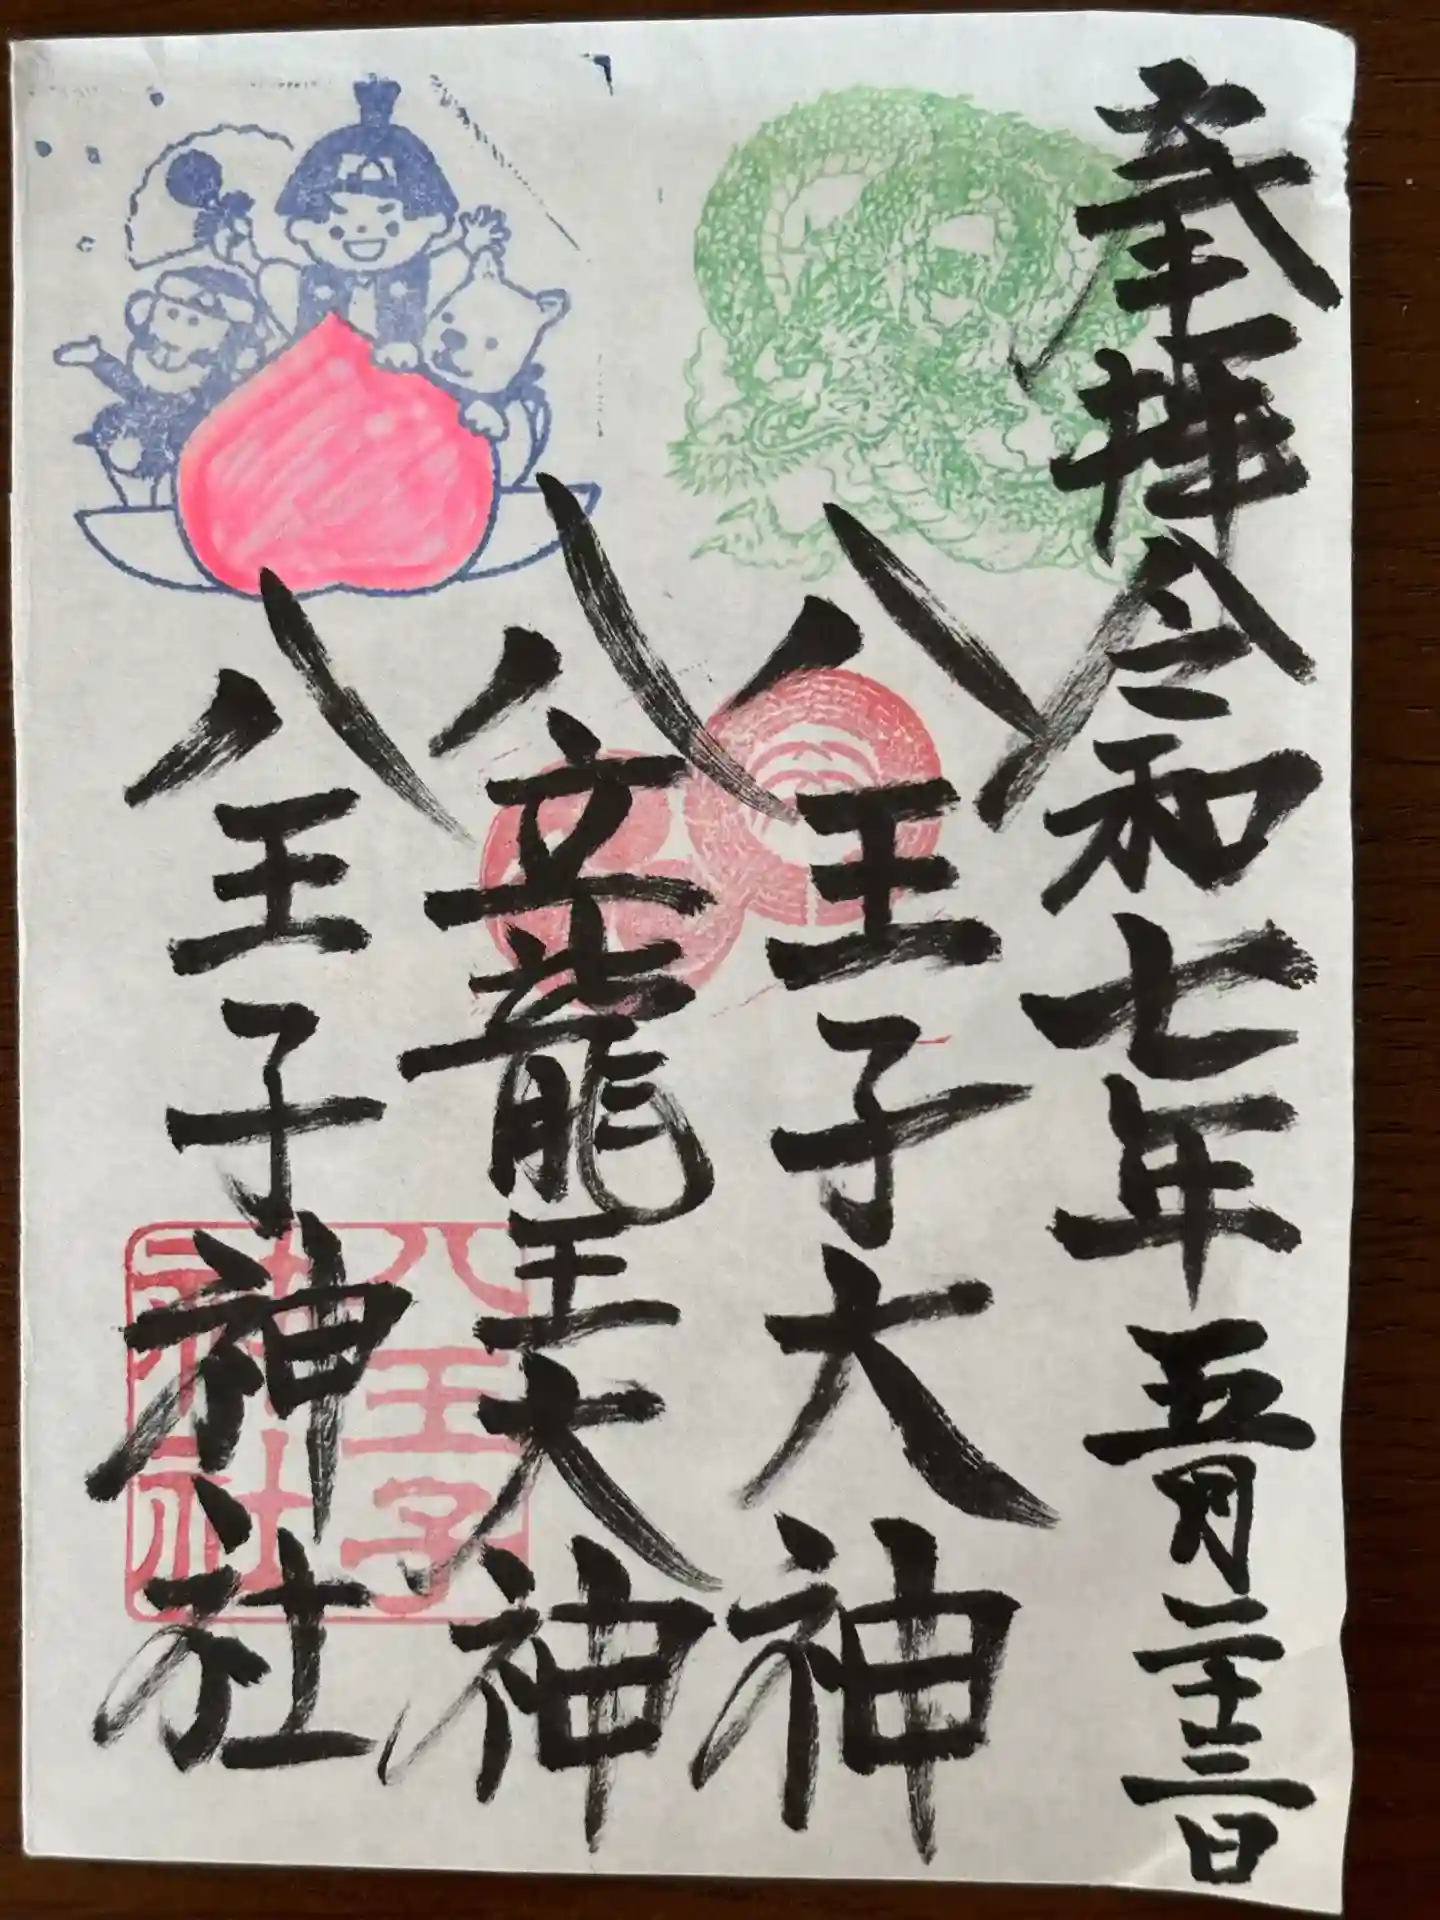 奉拝 令和七年 五月 二十三日
八王子大神
八大龍王大神
八王子神社
八王子
神社